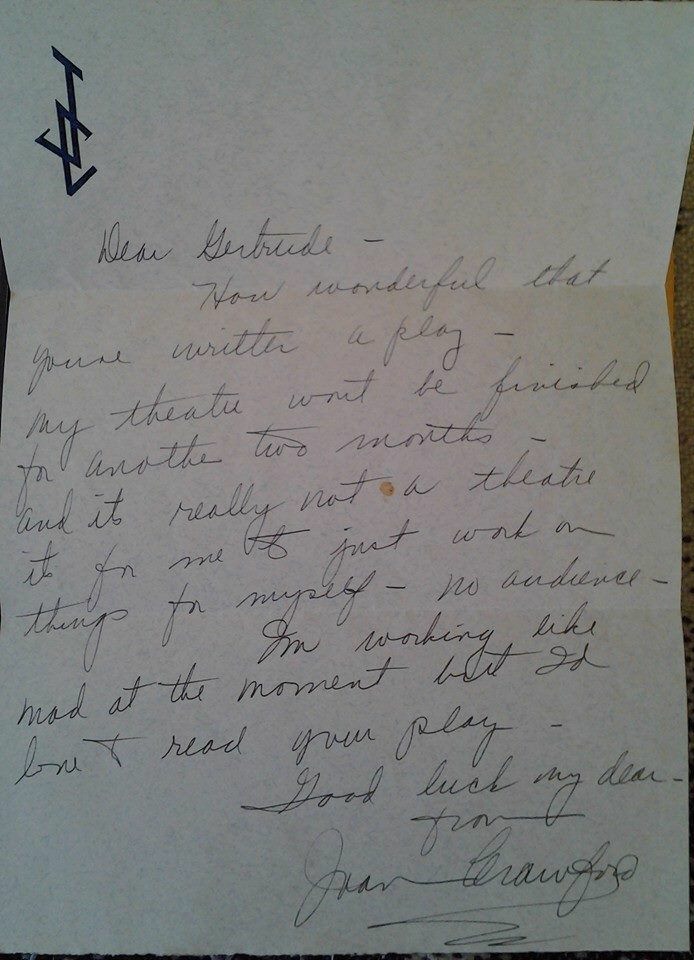 Dear Gertrude –
How wonderful that
youve written a play –
my theatre wont be finished
for another two months –
and its really not a theatre
its for me to just work on
things for myself – no audience –
Im working like
mad at the moment but Id
love to read your play –
Good luck my dear –
from
Joan Crawford